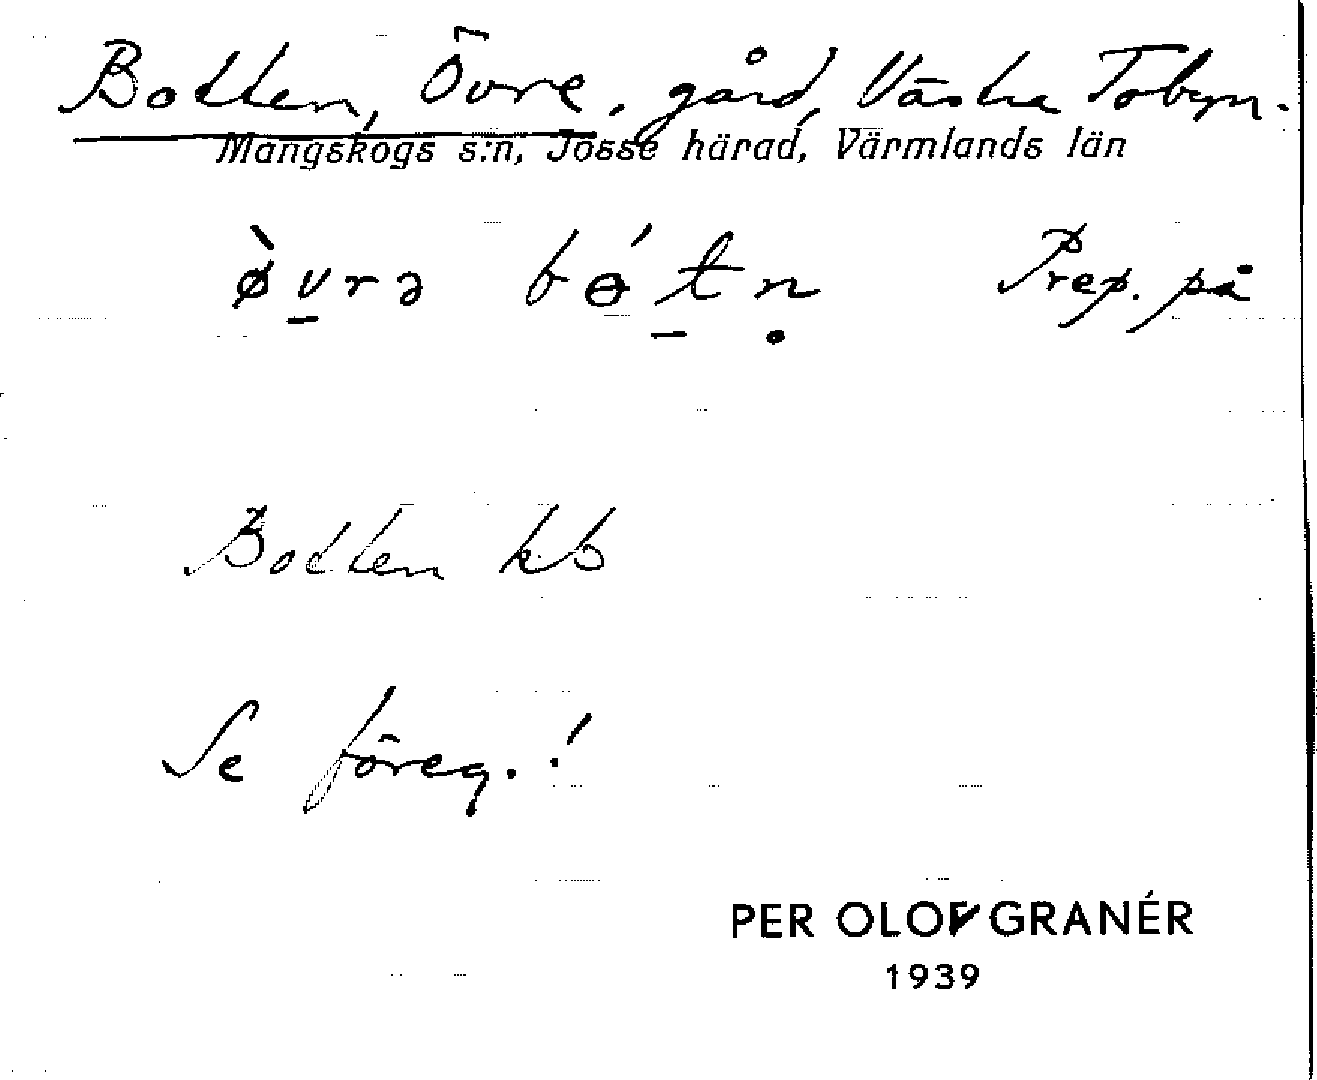 Botten, Övre, gård, Västra Tobyn.
Mangskogs s:n, Jösse härad, Värmlands län
ø̀v̱rə bɵ́ṯṇ Prep. på
Botten kb
Se föreg.!
PER OLOF GRANÉR
1939